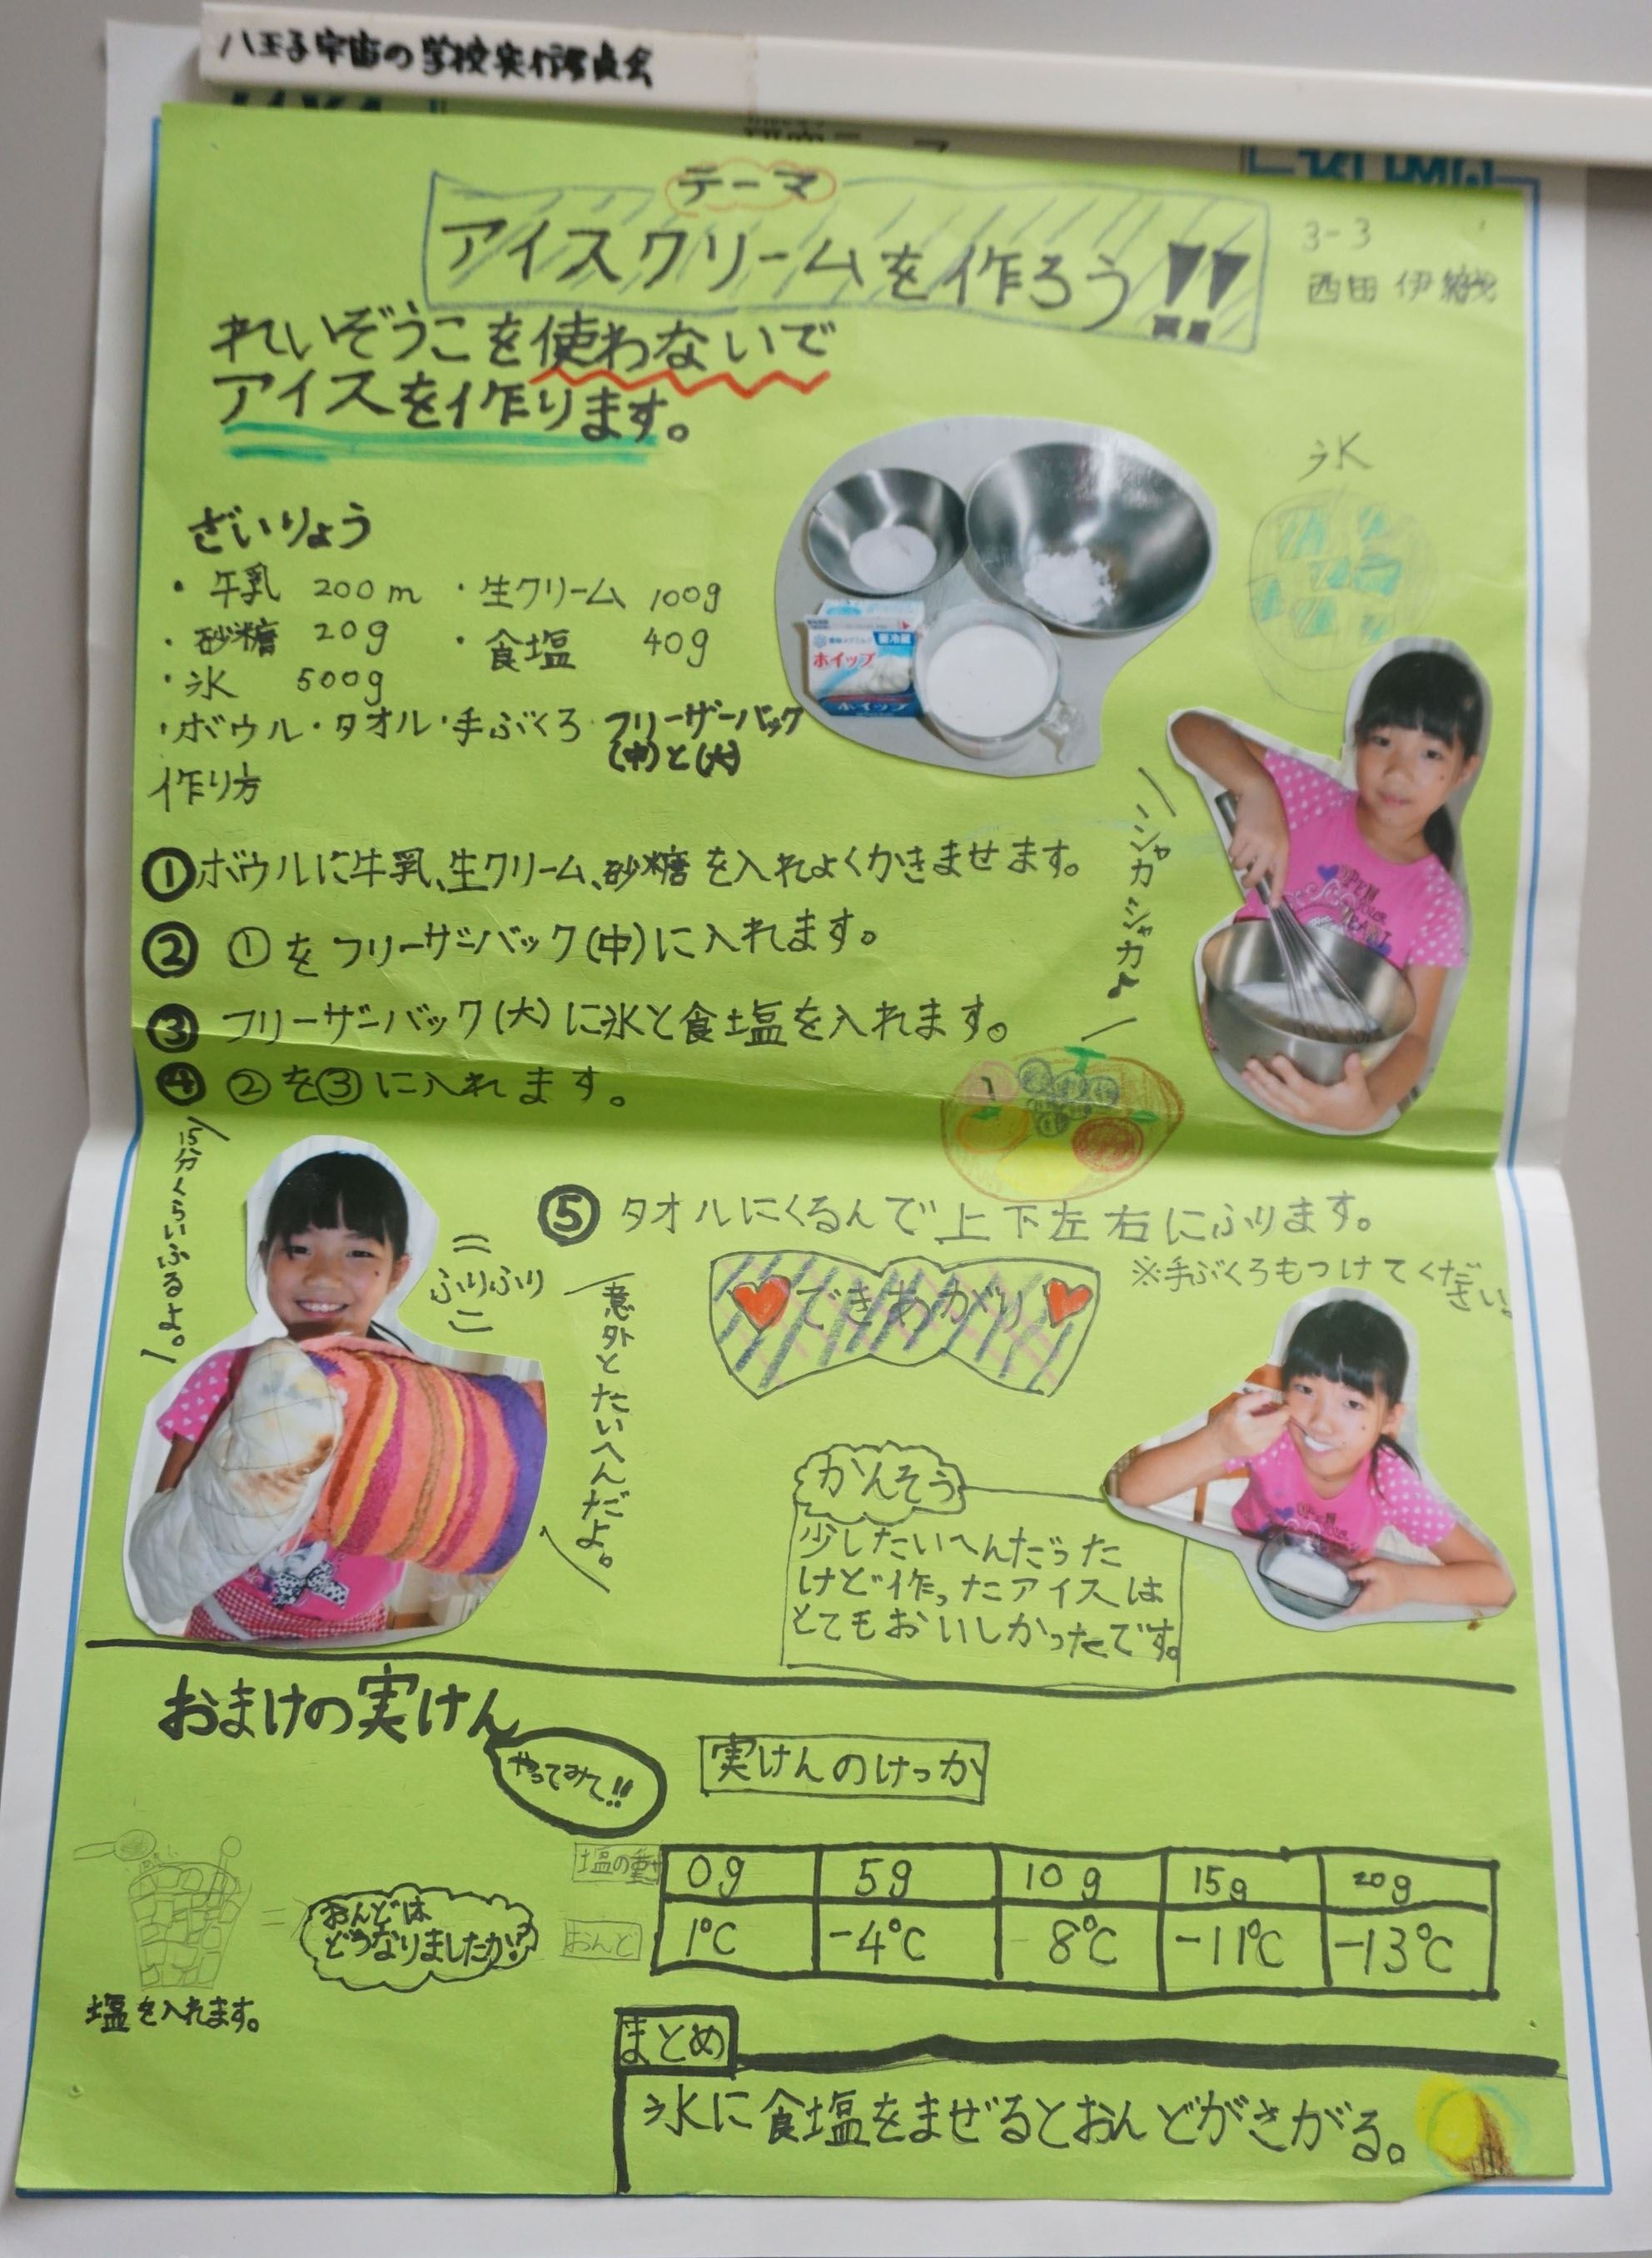 八王子宇宙の学校実行委員会
テーマ
アイスクリームを作ろう!!
3-3
西田 伊
れいぞうこを使わないで
アイスを作ります。
氷
ざいりょう
・牛乳 200m ・生クリーム 100g
・砂糖 20g ・食塩 40g
・氷 500g
・ボウル・タオル・手ぶくろ・フリーザーバック
(中)と(大)
ホイップ
ホイップ
作り方
①ボウルに牛乳、生クリーム、砂糖を入れよくかきまぜます。
② ①をフリーザーバック(中)に入れます。
③ フリーザーバック(大)に氷と食塩を入れます。
④ ②を③に入れます。
シャカシャカ♪
OPEN
15分くらいふるよ。
ふりふり
意外とたいへんだよ。
⑤ タオルにくるんで上下左右にふります。
※手ぶくろもつけてくだ
さい。
できあがり
かんそう
少したいへんだった
けど作ったアイスは
とてもおいしかったです。
おまけの実けん
やってみて!!
実けんのけっか
塩の重さ 0g 5g 10g 15g 20g
おんど 1℃ -4℃ -8℃ -11℃ -13℃
おんどは
どうなりましたか?
塩を入れます。
まとめ
氷に食塩をまぜるとおんどがさがる。